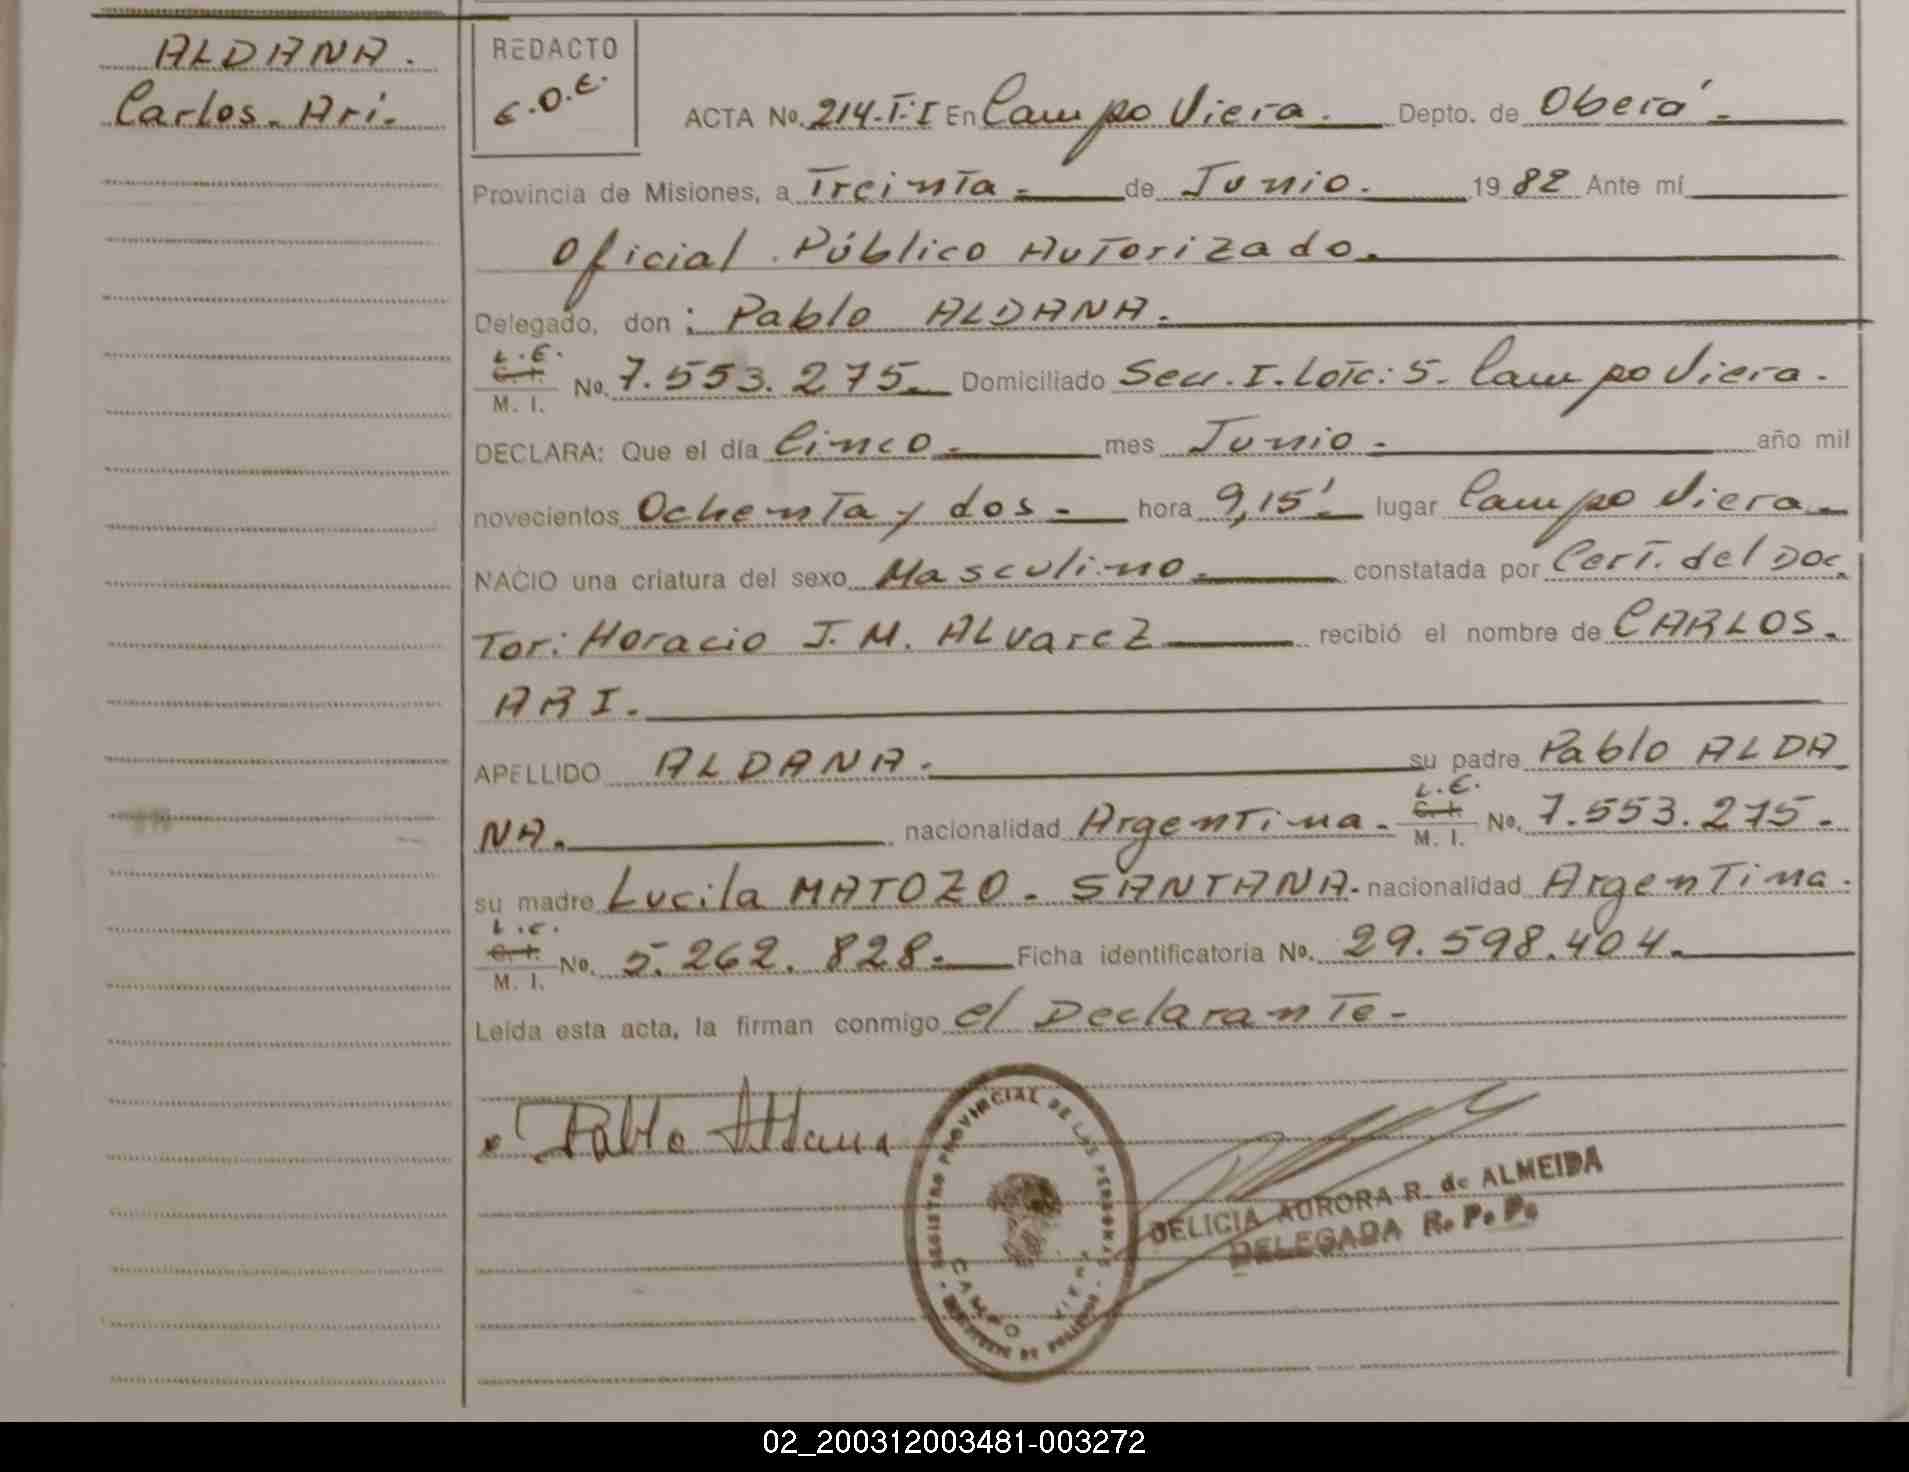 ALDANA.
Carlos-Ari.
REDACTO
G.O.E.
ACTA No. 214-T-I En Campo Viera. Depto. de Oberá.-
Provincia de Misiones, a Treinta.- de Junio. 1982 Ante mí
Oficial Público Autorizado.
Delegado, don: Pablo ALDANA.
L.E.
C. I.
M. I. No. 7.553.275. Domiciliado Secc. I. Lote: 5. Campo Viera.
DECLARA: Que el día Cinco.- mes Junio.- año mil
novecientos Ochenta y dos.- hora 9,15'.- lugar Campo Viera.-
NACIO una criatura del sexo Masculino.- constatada por Cert. del Doc
Tor: Horacio J. M. ALvarez recibió el nombre de CARLOS.
ARI.
APELLIDO ALDANA.- su padre Pablo ALDA
NA. nacionalidad Argentina.- L.E. C. I. M. I. No. 7.553.275.
su madre Lucila MATOZO - SANTANA. nacionalidad Argentina.
L.C.
C. I.
M. I. No. 5.262.828.- Ficha identificatoria No. 29.598.404.
Leída esta acta, la firman conmigo el Declarante.-
Pablo Aldana
REGISTRO PROVINCIAL DE LAS PERSONAS
CAMPO VIERA
DELICIA AURORA R. de ALMEIDA
DELEGADA R. P. P.
02_200312003481-003272